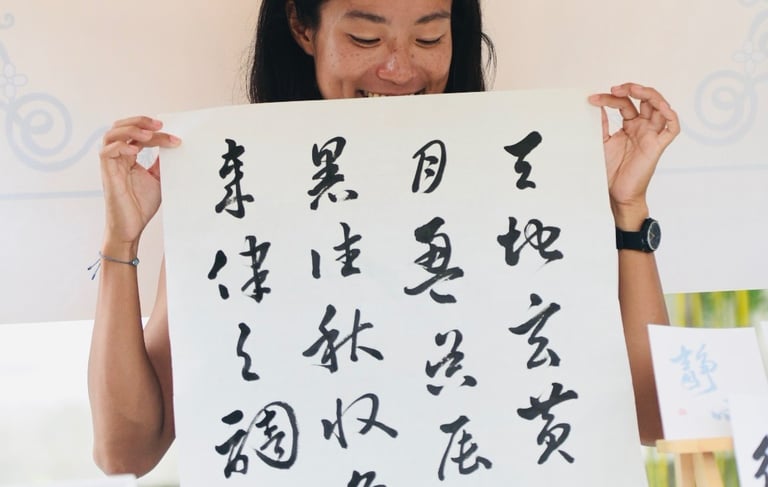 天地玄黄
月盈昃辰
暑往秋收
歲律呂調
静